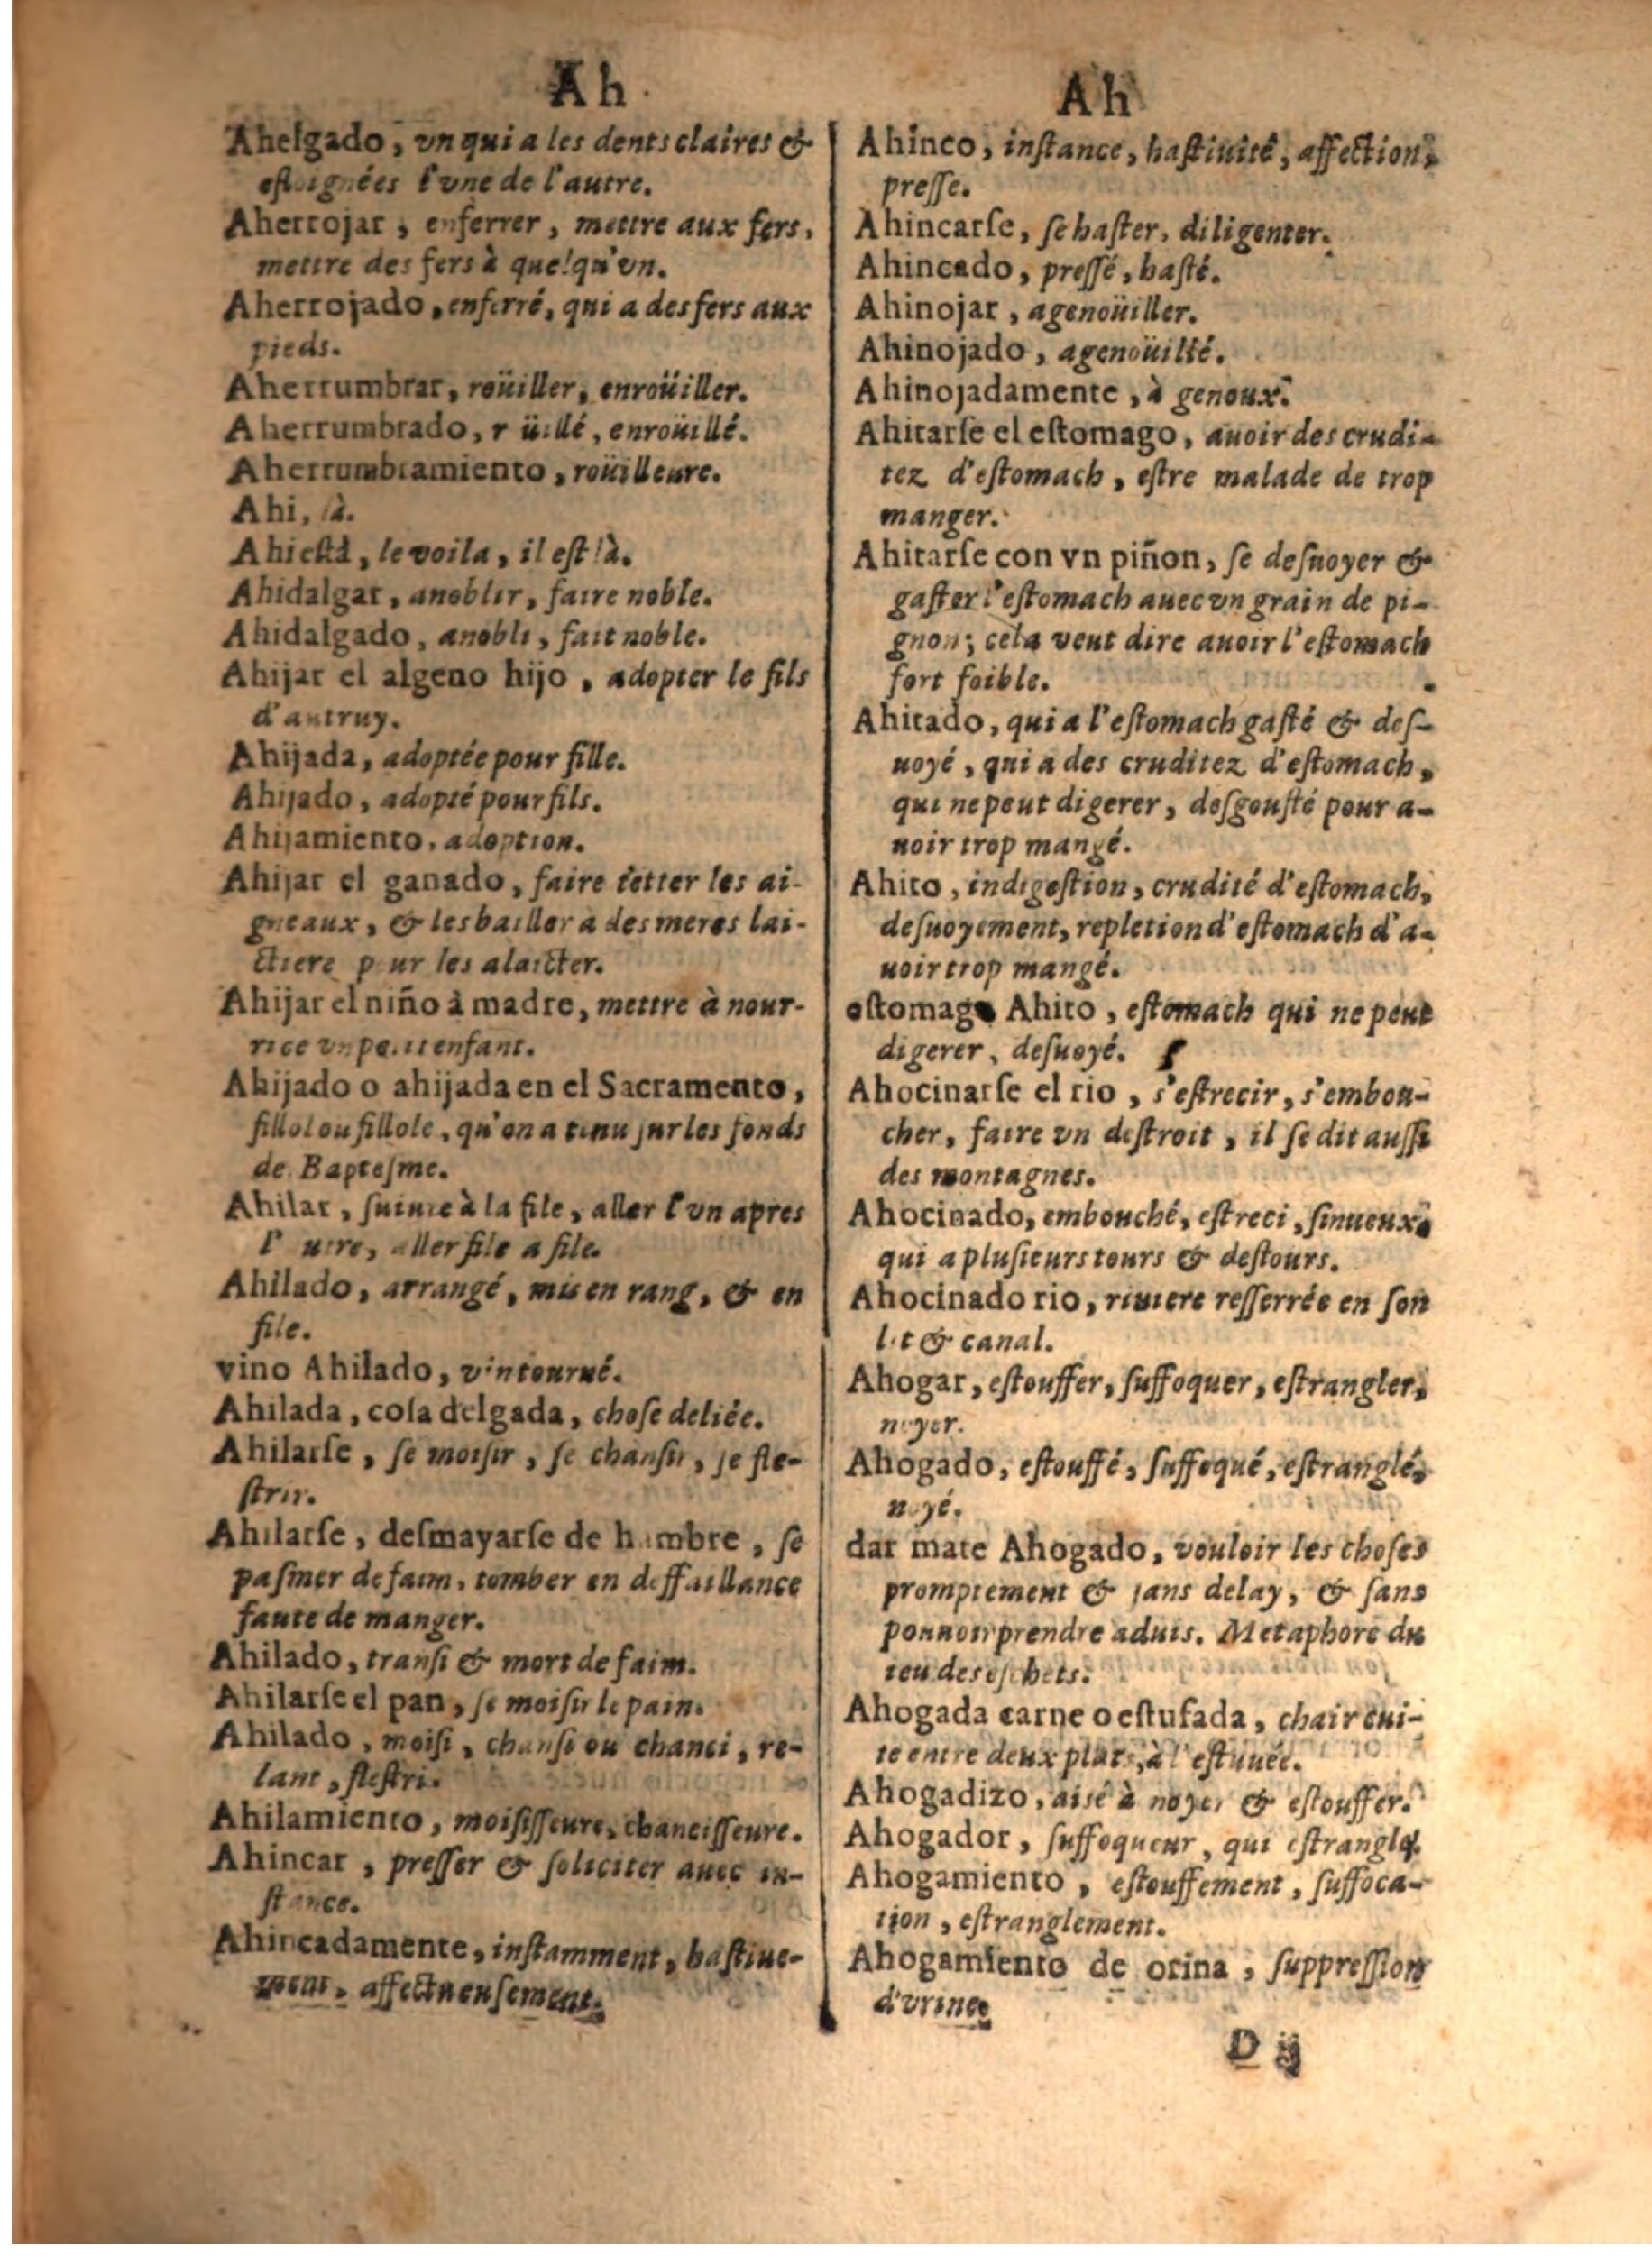 Ah
Ahelgado, vn qui a les dents claires &
esloignées l'vne de l'autre.
Aherrojar, enferrer, mettre aux fers,
mettre des fers à quelqu'vn.
Aherrojado, enferré, qui a des fers aux
pieds.
Aherrumbrar, roüiller, enroüiller.
Aherrumbrado, r üillé, enroüillé.
Aherrumbramiento, roüilleure.
Ahi, là.
Ahiestá, le voila, il est là.
Ahidalgar, anoblir, faire noble.
Ahidalgado, anobli, fait noble.
Ahijar el algeno hijo, adopter le fils
d'autruy.
Ahijada, adoptée pour fille.
Ahijado, adopté pour fils.
Ahijamiento, adoption.
Ahijar el ganado, faire tetter les ai-
gneaux, & les bailler a des meres lai-
ctiere p ur les alaicter.
Ahijar el niño à madre, mettre à nour-
rice vn petit enfant.
Ahijado o ahijada en el Sacramento,
fillol ou fillole, qu'on a tenu sur les fonds
de Baptesme.
Ahilar, suiure à la file, aller l'vn apres
l' utre, aller file a file.
Ahilado, arrangé, mis en rang, & en
file.
vino Ahilado, vin tourné.
Ahilada, cosa delgada, chose deliée.
Ahilarse, se moisir, se chansir, se fle-
strir.
Ahilarse, desmayarse de hambre, se
pasmer de faim, tomber en deffaillance
faute de manger.
Ahilado, transi & mort de faim.
Ahilarse el pan, se moisir le pain.
Ahilado, moisi, chansi ou chanci, re-
lant, flestri.
Ahilamiento, moisisseure, chancisseure.
Ahincar, presser & soliciter auec in-
stance.
Ahincadamente, instamment, hastiue-
ment, affectueusement.
Ah
Ahinco, instance, hastiuité, affection,
presse.
Ahincarse, se haster, diligenter.
Ahincado, pressé, hasté.
Ahinojar, agenoüiller.
Ahinojado, agenoüillé.
Ahinojadamente, à genoux.
Ahitarse el estomago, auoir des crudi-
tez d'estomach, estre malade de trop
manger.
Ahitarse con vn piñon, se desuoyer &
gaster l'estomach auec vn grain de pi-
gnon; cela veut dire auoir l'estomach
fort foible.
Ahitado, qui a l'estomach gasté & des-
uoyé, qui a des cruditez d'estomach,
qui ne peut digerer, desgousté pour a-
uoir trop mangé.
Ahito, indigestion, crudité d'estomach,
desuoyement, repletion d'estomach d'a-
uoir trop mangé.
estomago Ahito, estomach qui ne peut
digerer, desuoyé.
Ahocinarse el rio, s'estrecir, s'embou-
cher, faire vn destroit, il se dit aussi
des montagnes.
Ahocinado, embouché, estreci, sinueux,
qui a plusieurs tours & destours.
Ahocinado rio, riuiere resserrée en son
lit & canal.
Ahogar, estouffer, suffoquer, estrangler,
noyer.
Ahogado, estouffé, suffoqué, estranglé,
noyé.
dar mate Ahogado, vouloir les choses
promptement & sans delay, & sans
pouuoir prendre aduis. Metaphore du
ieu des eschets.
Ahogada carne o estufada, chair cui-
te entre deux plats, à l'estuuée.
Ahogadizo, aisé à noyer & estouffer.
Ahogador, suffoqueur, qui estrangle.
Ahogamiento, estouffement, suffoca-
tion, estranglement.
Ahogamiento de orina, suppression
d'vrine.
D ij